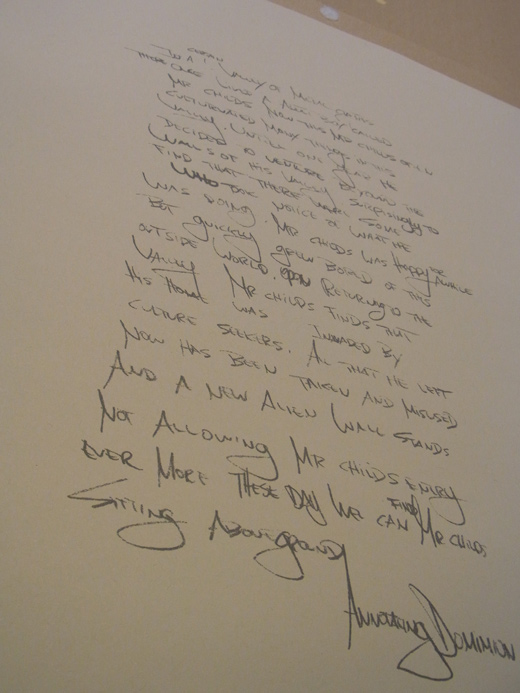 IN A VALLEY OF
THERE ONCE LIVED A BOY CALLED
MR CHILDS NOW THIS MR CHILDS
CULTURVATED MANY THINGS IN THIS
VALLEY. UNTILL ONE DAY HE
DECIDED TO VENTURE BEYOND THE
WALLS OF HIS VALLEY SURPRISINGLY TO
FIND THAT THERE WERE SOME
WHO TOOK NOTICE OF WHAT HE
WAS DOING. MR CHILDS WAS HAPPY FOR AWHILE
BUT QUICKLY GREW BORED OF THIS
OUTSIDE WORLD. UPON RETURNING TO THE
VALLEY MR CHILDS FINDS THAT
HIS HOME WAS INVADED BY
CULTURE SEEKERS. ALL THAT HE LEFT
NOW HAS BEEN TAKEN AND MISUSED
AND A NEW ALIEN WALL STANDS
NOT ALLOWING MR CHILDS ENTRY
EVER MORE THESE DAY WE CAN FIND MR CHILDS
SITTING ABOVE GROUND
DOMINION